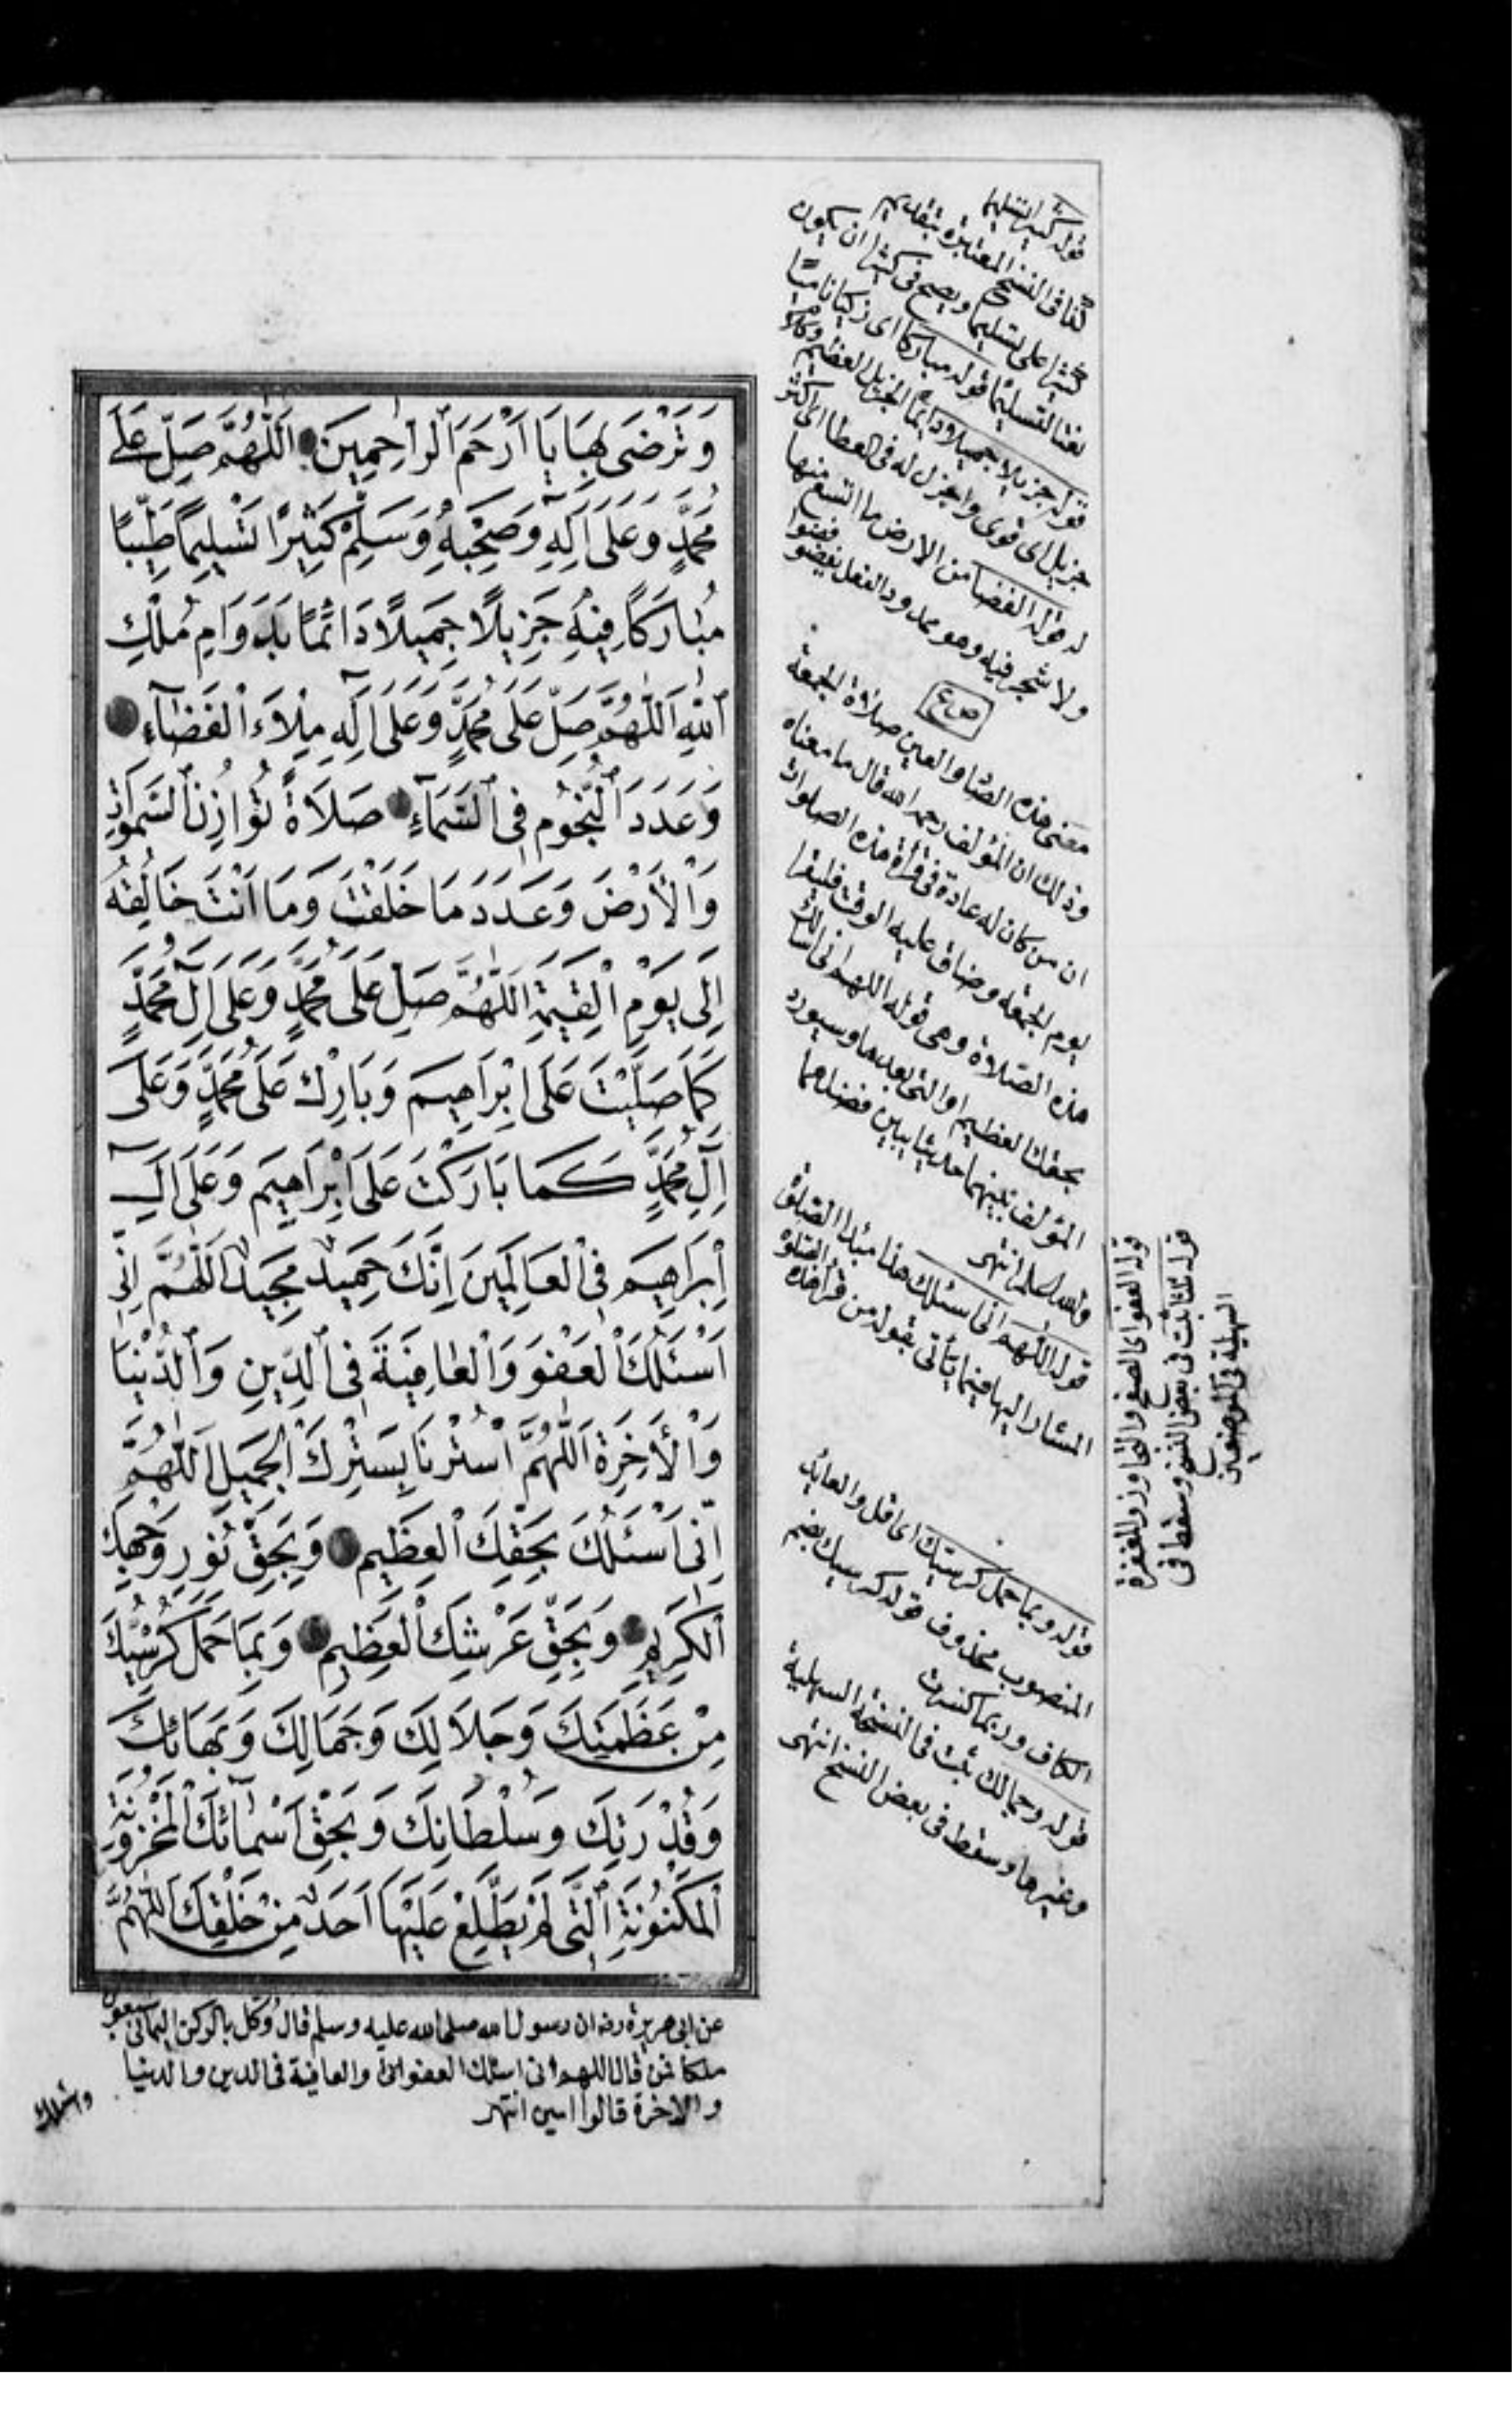 وَتَرْضَى بِهَا يَا اَرْحَمَ الرَّاحِمِينَ اَللّٰهُمَّ صَلِّ عَلٰى
مُحَمَّدٍ وَعَلَى اٰلِهِ وَصَحْبِهِ وَسَلِّمْ كَثِيرًا تَسْلِيمًا طَيِّبًا
مُبَارَكًا فِيهِ جَزِيلًا جَمِيلًا دَائِمًا بِدَوَامِ مُلْكِ
اللّٰهِ اَللّٰهُمَّ صَلِّ عَلَى مُحَمَّدٍ وَعَلَى اٰلِهِ مِلْاَءَ الْفَضَاءِ
وَعَدَدَ النُّجُومِ فِى السَّمَاءِ صَلَاةً تُوَازِنُ السَّمٰوَاتِ
وَالْاَرْضَ وَعَدَدَ مَا خَلَقْتَ وَمَا اَنْتَ خَالِقُهُ
اِلَى يَوْمِ الْقِيٰمَةِ اَللّٰهُمَّ صَلِّ عَلَى مُحَمَّدٍ وَعَلَى اٰلِ مُحَمَّدٍ
كَمَا صَلَّيْتَ عَلَى اِبْرَاهِيمَ وَبَارِكْ عَلَى مُحَمَّدٍ وَعَلَى
اٰلِ مُحَمَّدٍ كَمَا بَارَكْتَ عَلَى اِبْرَاهِيمَ وَعَلَى اٰلِ
اِبْرَاهِيمَ فِى الْعَالَمِينَ اِنَّكَ حَمِيدٌ مَجِيدٌ اَللّٰهُمَّ اِنِّى
اَسْئَلُكَ الْعَفْوَ وَالْعَافِيَةَ فِى الدِّينِ وَالدُّنْيَا
وَالْاٰخِرَةِ اَللّٰهُمَّ اسْتُرْنَا بِسَتْرِكَ الْجَمِيلِ اَللّٰهُمَّ
اِنِّى اَسْئَلُكَ بِحَقِّكَ الْعَظِيمِ وَبِحَقِّ نُورِ وَجْهِكَ
الْكَرِيمِ وَبِحَقِّ عَرْشِكَ الْعَظِيمِ وَبِمَا حَمَلَ كُرْسِيُّكَ
مِنْ عَظَمَتِكَ وَجَلَالِكَ وَجَمَالِكَ وَبَهَائِكَ
وَقُدْرَتِكَ وَسُلْطَانِكَ وَبِحَقِّ اَسْمَائِكَ الْمَخْزُونَةِ
الْمَكْنُونَةِ الَّتِى لَمْ يَطَّلِعْ عَلَيْهَا اَحَدٌ مِنْ خَلْقِكَ اَللّٰهُمَّ
عن ابى هريرة رضه ان رسول الله صلى الله عليه وسلم قال وكل بالركن اليمانى سبعون
ملكا فمن قال اللهم انى اسئلك العفو والعافية فى الدين والدنيا
والاخرة قالوا امين انتهى
واسئلك
قوله كثيرا تسليما
كذا فى النسخ المعتبرة بتقديم
كثيرا على تسليما ويصح فى كثيرا ان يكون
نعتا لتسليما قوله مباركا اى زكيا ناميا
قوله جزيلا جميلا دائما الجزيل العظيم
جزيل اى قوى واجزل له فى العطا اى اكثر
له قوله الفضا من الارض ما اتسع منها
ولا شجر فيه وهو ممدود والفعل يفضو
ص ع
معنى هذه الصاد والعين صلاة الجمعة
وذلك ان المؤلف رحمه الله قال ما معناه
ان من كان له عادة فى قرأة هذه الصلوات
يوم الجمعة وضاق عليه الوقت فليقرا
هذه الصلاة وهى قوله اللهم انى اسالك
بحقك العظيم والتى بعدها وسيورد
المؤلف بينهما حديثا يبين فضلهما
والله اعلم انتهى
قوله اللهم انى اسئلك هذا مبدا الصلاة
المشار اليها فيما يأتى بقوله من قرأ هذه الصلوة
قوله وبما حمل كرسيك اى اقل والعايد
المنصوب محذوف قوله كرسيك بضم
الكاف وربما كسرت
قوله وجمالك ثبت فى النسخة السهلية
وغيرها وسقط فى بعض النسخ انتهى
قوله العفو اى الصفح والتجاوز والمغفرة
ثابت فى بعض النسخ وسقط فى
السهلية فى الموضعين